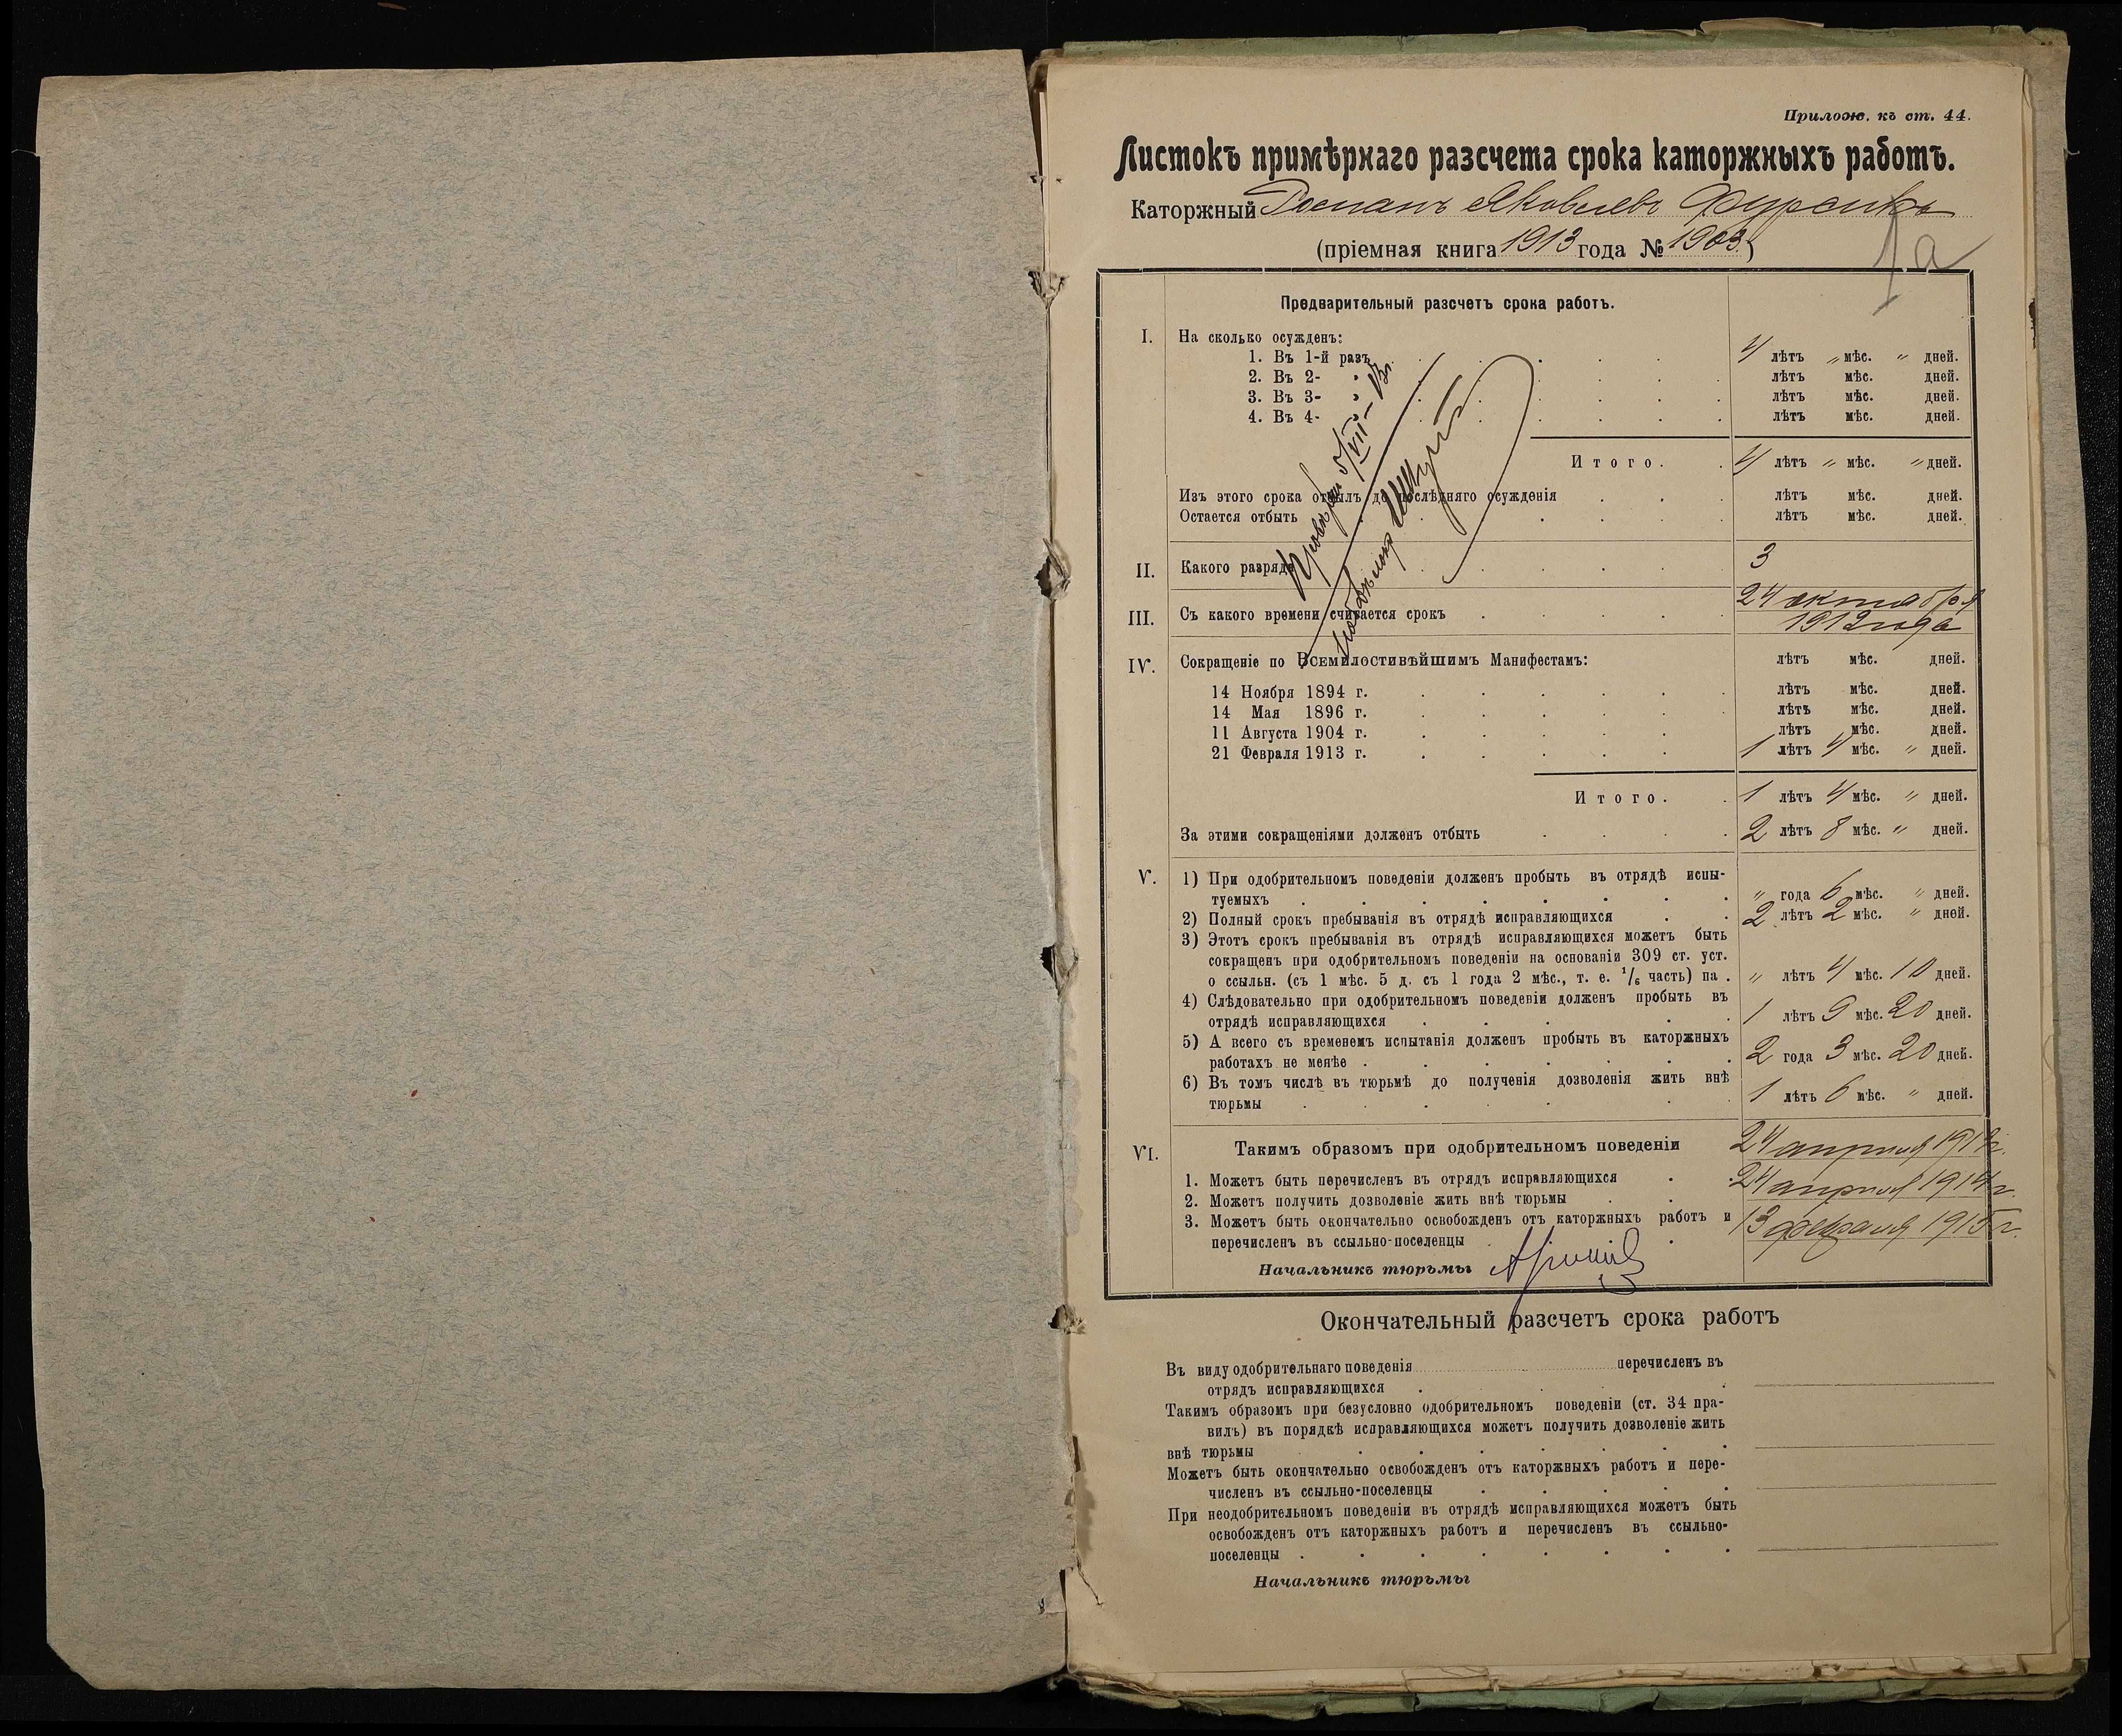 Прилож. къ ст. 44.
Листокъ примѣрнаго разсчета срока каторжныхъ работъ.
Каторжный Романъ Яковлевъ Фурсикъ
(пріемная книга 1913 года № 1903)
1а
Предварительный разсчетъ срока работъ.
I. На сколько осужденъ:
1. Въ 1-й разъ . . . . 4 лѣтъ „ мѣс. „ дней.
2. Въ 2- „ . . . . лѣтъ мѣс. дней.
3. Въ 3- „ . . . . лѣтъ мѣс. дней.
4. Въ 4- „ . . . . лѣтъ мѣс. дней.
Итого. . 4 лѣтъ „ мѣс. „ дней.
Изъ этого срока отбылъ до послѣдняго осужденія . . . лѣтъ мѣс. дней.
Остается отбыть . . . . лѣтъ мѣс. дней.
II. Какого разряда . . . . 3
III. Съ какого времени считается срокъ . . . . 24 октября
1912 года
IV. Сокращеніе по Всемилостивѣйшимъ Манифестамъ: лѣтъ мѣс. дней.
14 Ноября 1894 г. . . . . . . лѣтъ мѣс. дней.
14 Мая 1896 г. . . . . . . лѣтъ мѣс. дней.
11 Августа 1904 г. . . . . . лѣтъ мѣс. дней.
21 Февраля 1913 г. . . . . . 1 лѣтъ 4 мѣс. „ дней.
Итого. . 1 лѣтъ 4 мѣс. „ дней.
За этими сокращеніями долженъ отбыть . . . . 2 лѣтъ 8 мѣс. „ дней.
V. 1) При одобрительномъ поведеніи долженъ пробыть въ отрядѣ испы-
туемыхъ . . . . . . . . „ года 6 мѣс. „ дней.
2) Полный срокъ пребыванія въ отрядѣ исправляющихся . . 2 лѣтъ 2 мѣс. „ дней.
3) Этотъ срокъ пребыванія въ отрядѣ исправляющихся можетъ быть
сокращенъ при одобрительномъ поведеніи на основаніи 309 ст. уст.
о ссыльн. (съ 1 мѣс. 5 д. съ 1 года 2 мѣс., т. е. 1/6 часть) на . „ лѣтъ 4 мѣс. 10 дней.
4) Слѣдовательно при одобрительномъ поведеніи долженъ пробыть въ
отрядѣ исправляющихся . . . . . 1 лѣтъ 9 мѣс. 20 дней.
5) А всего съ временемъ испытанія долженъ пробыть въ каторжныхъ
работахъ не менѣе . . . . . . . 2 года 3 мѣс. 20 дней.
6) Въ томъ числѣ въ тюрьмѣ до полученія дозволенія жить внѣ
тюрьмы . . . . . 1 лѣтъ 6 мѣс. „ дней.
VI. Такимъ образомъ при одобрительномъ поведеніи
1. Можетъ быть перечисленъ въ отрядъ исправляющихся . . 24 апрѣля
2. Можетъ получить дозволеніе жить внѣ тюрьмы . . . 24 апрѣля 1914 г.
3. Можетъ быть окончательно освобожденъ отъ каторжныхъ работъ и 13 февраля 1915 г.
перечисленъ въ ссыльно-поселенцы . .
Начальникъ тюрьмы
Окончательный разсчетъ срока работъ
Въ виду одобрительнаго поведенія перечисленъ въ
отрядъ исправляющихся . . . .
Такимъ образомъ при безусловно одобрительномъ поведеніи (ст. 34 пра-
вилъ) въ порядкѣ исправляющихся можетъ получить дозволеніе жить
внѣ тюрьмы . . . . . . . .
Можетъ быть окончательно освобожденъ отъ каторжныхъ работъ и пере-
численъ въ ссыльно-поселенцы . . . . .
При неодобрительномъ поведеніи въ отрядѣ исправляющихся можетъ быть
освобожденъ отъ каторжныхъ работъ и перечисленъ въ ссыльно-
поселенцы . . . . . . . .
Начальникъ тюрьмы